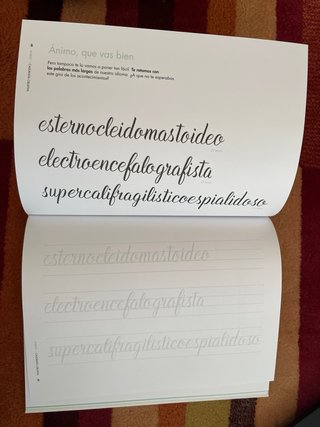 Ánimo, que vas bien
Pero tampoco te lo vamos a poner tan fácil. Te retamos con
las palabras más largas de nuestro idioma. ¿A que no te esperabas
este giro de los acontecimientos?
esternocleidomastoideo
electroencefalografista
supercalifragilisticoespialidoso
esternocleidomastoideo
electroencefalografista
supercalifragilisticoespialidoso